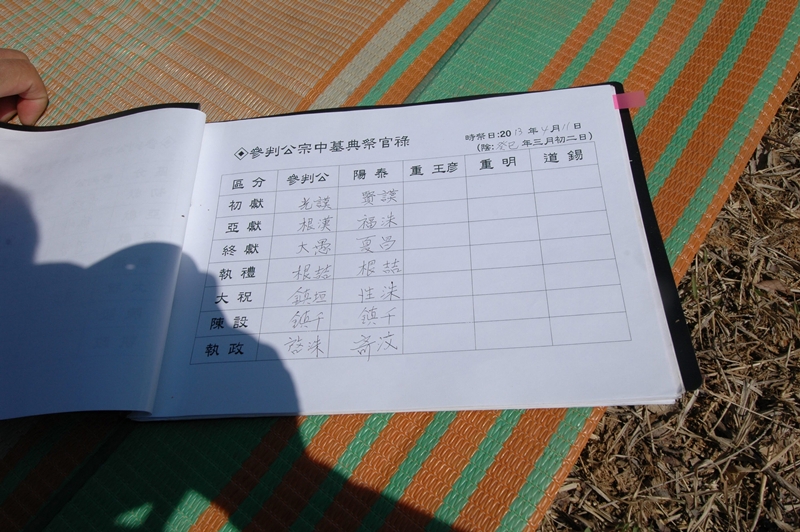 ◈參判公宗中墓典祭官祿
時祭日:2013年4月11日
(陰:癸巳年三月初二日)
區分 參判公 陽泰 重王彦 重明 道錫
初獻 光談 野談
亞獻 根漢 福洙
終獻 大愚 夏昌
執禮 根喆 根喆
大祝 鎮垣 性洙
陳設 鎮千 鎮千
執政 啓洙 奇汶